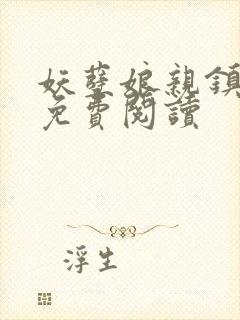 妖孽娘親鎮
免費閱讀
浮生